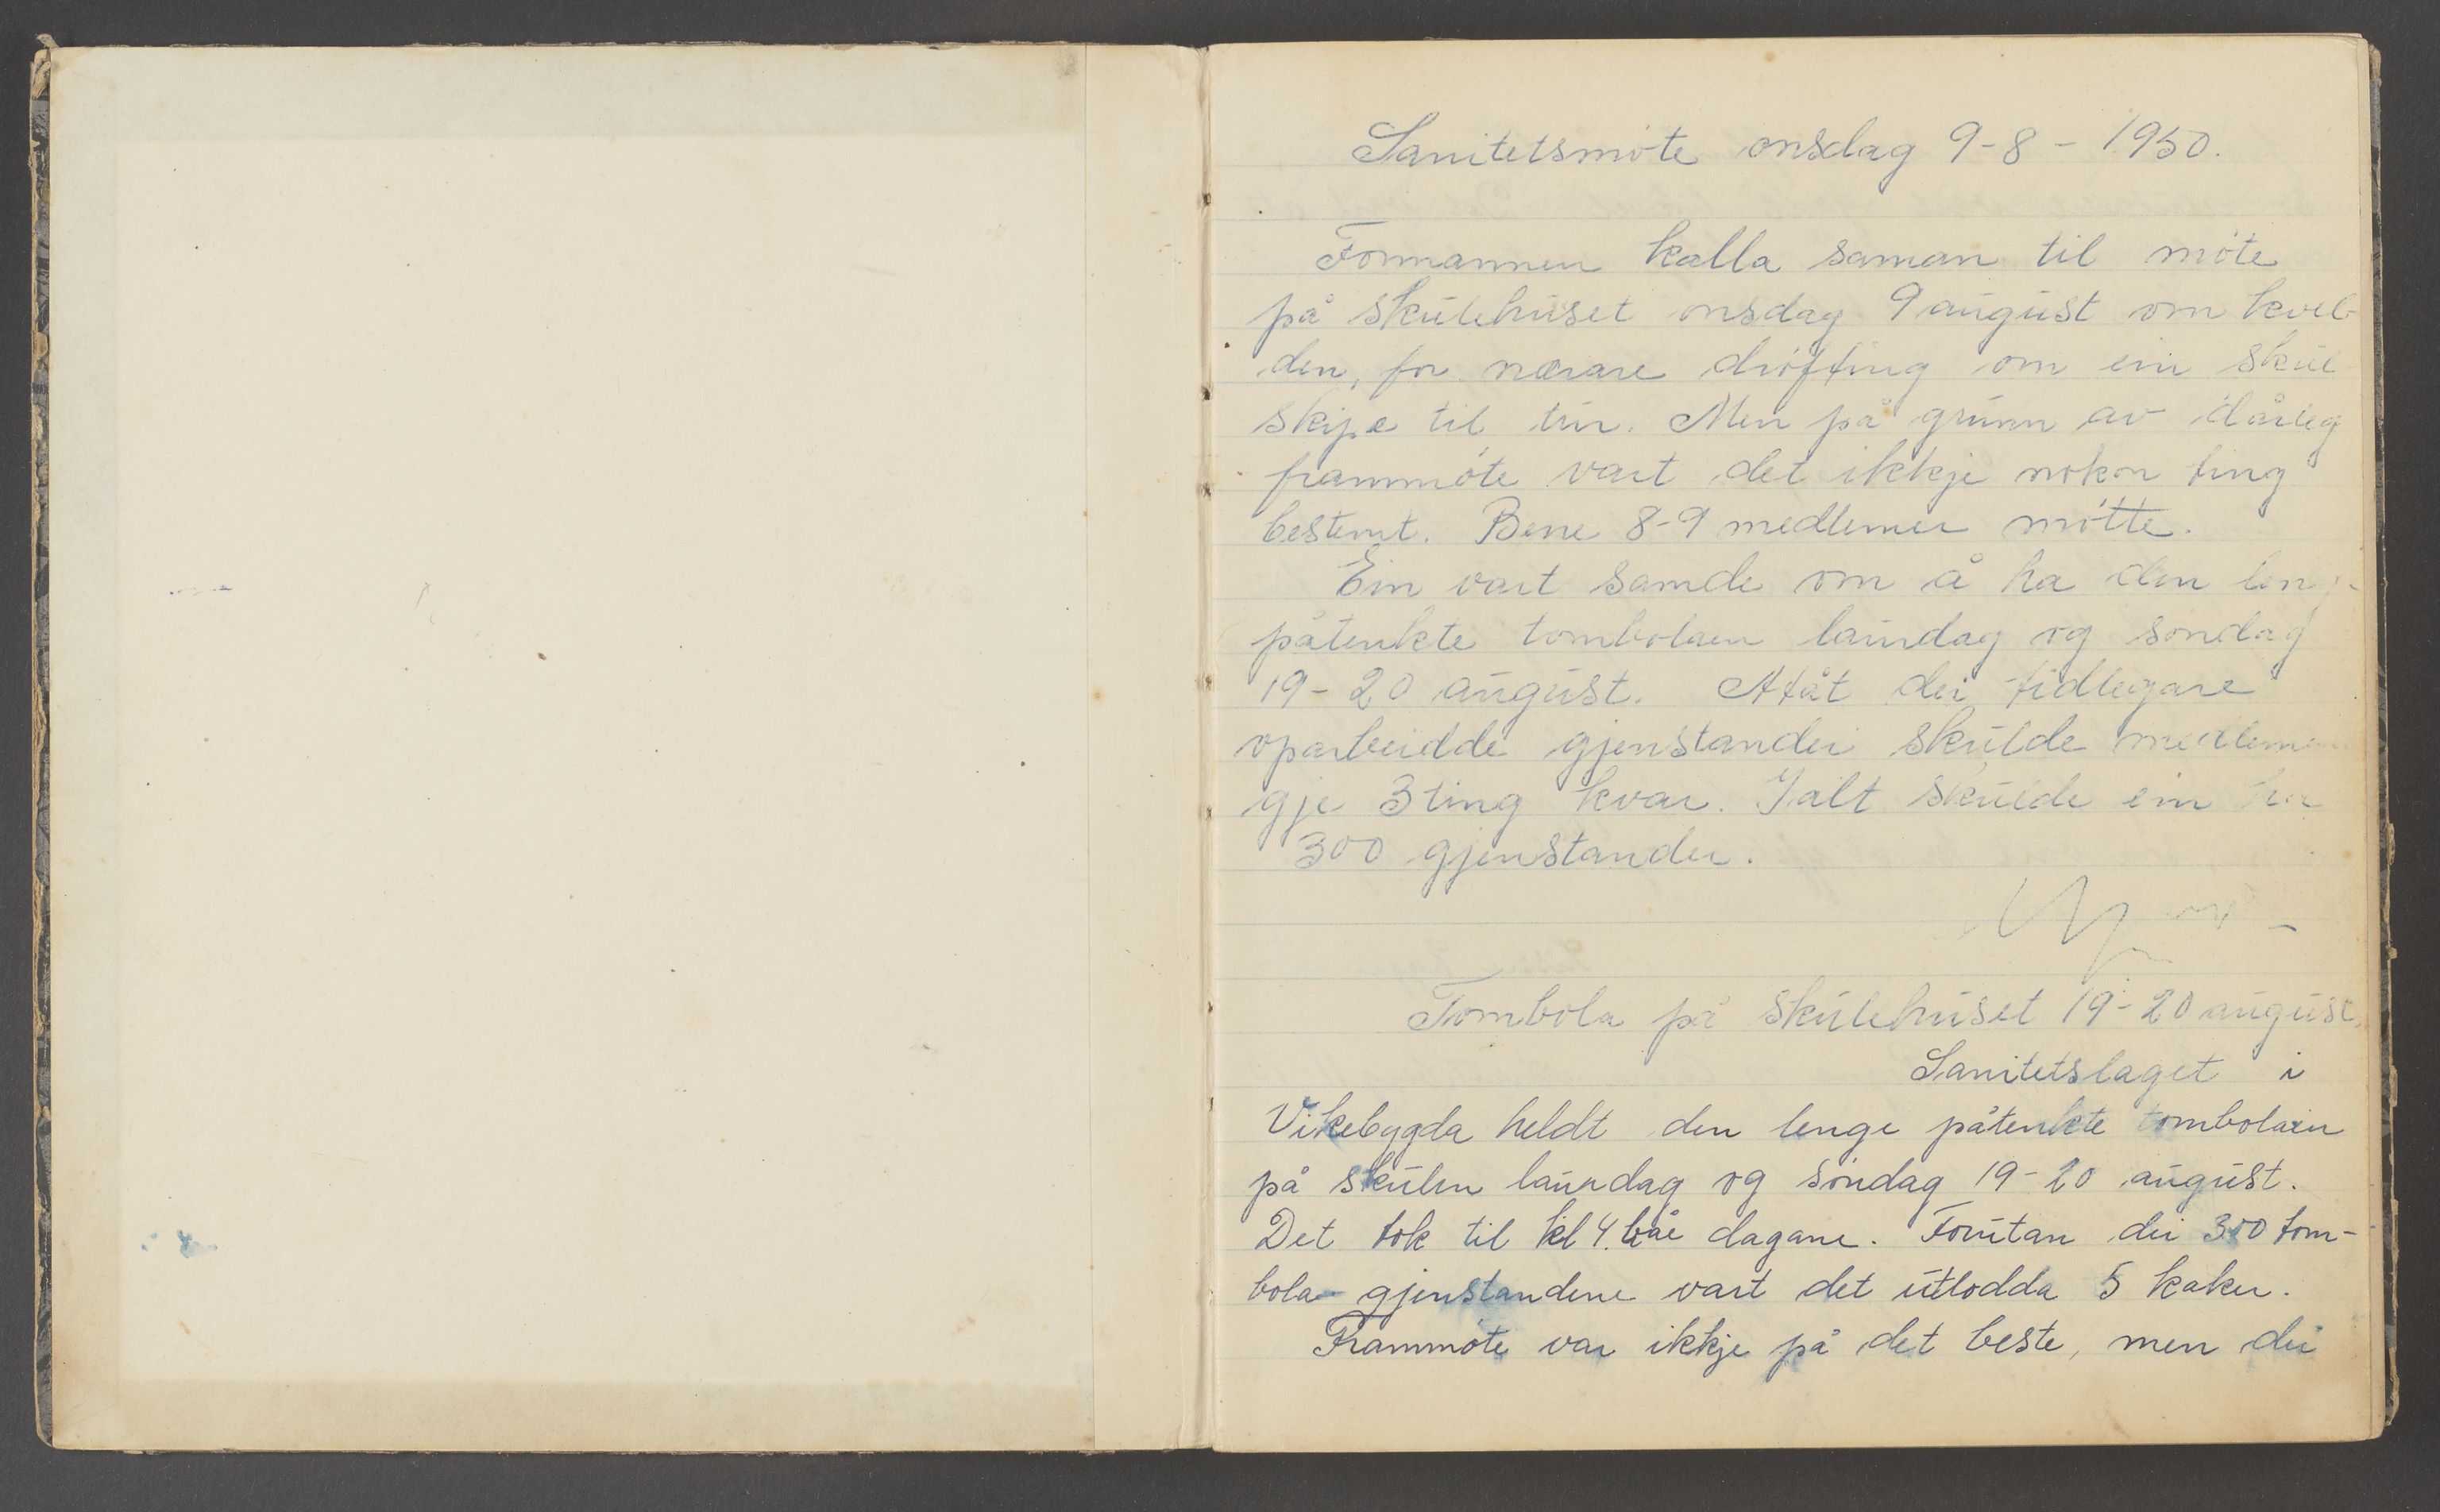 Sanitetsmöte onsdag 9-8-1950.
Formannen kalla saman til möte
på skulehuset onsdag 9 august om kvel-
den, for nærare dröfting om ein skul
skipe til tur. Men på grunn av dårleg
frammöte vart det ikkje nokon ting
bestemt. Bere 8-9 medlemer mötte.
Ein vart samde om å ha den leng-
påtenkte tombolaen laurdag og sondag
19-20 august. Attåt dei tidlegare
oparbeidde gjenstander skulde medlemene
gje 3 ting kvar. Ialt skulde ein ha
300 gjenstander.
Tombola på skulehuset 19-20 august.
Sanitetslaget i
Vikebygda heldt den lenge påtenkte tombolaen
på skulen laurdag og söndag 19-20 august.
Det tok til kl 4. båe dagane. Forutan dei 300 tom-
bola-gjenstandene vart det utlodda 5 kaker.
Frammöte var ikkje på det beste, men dei